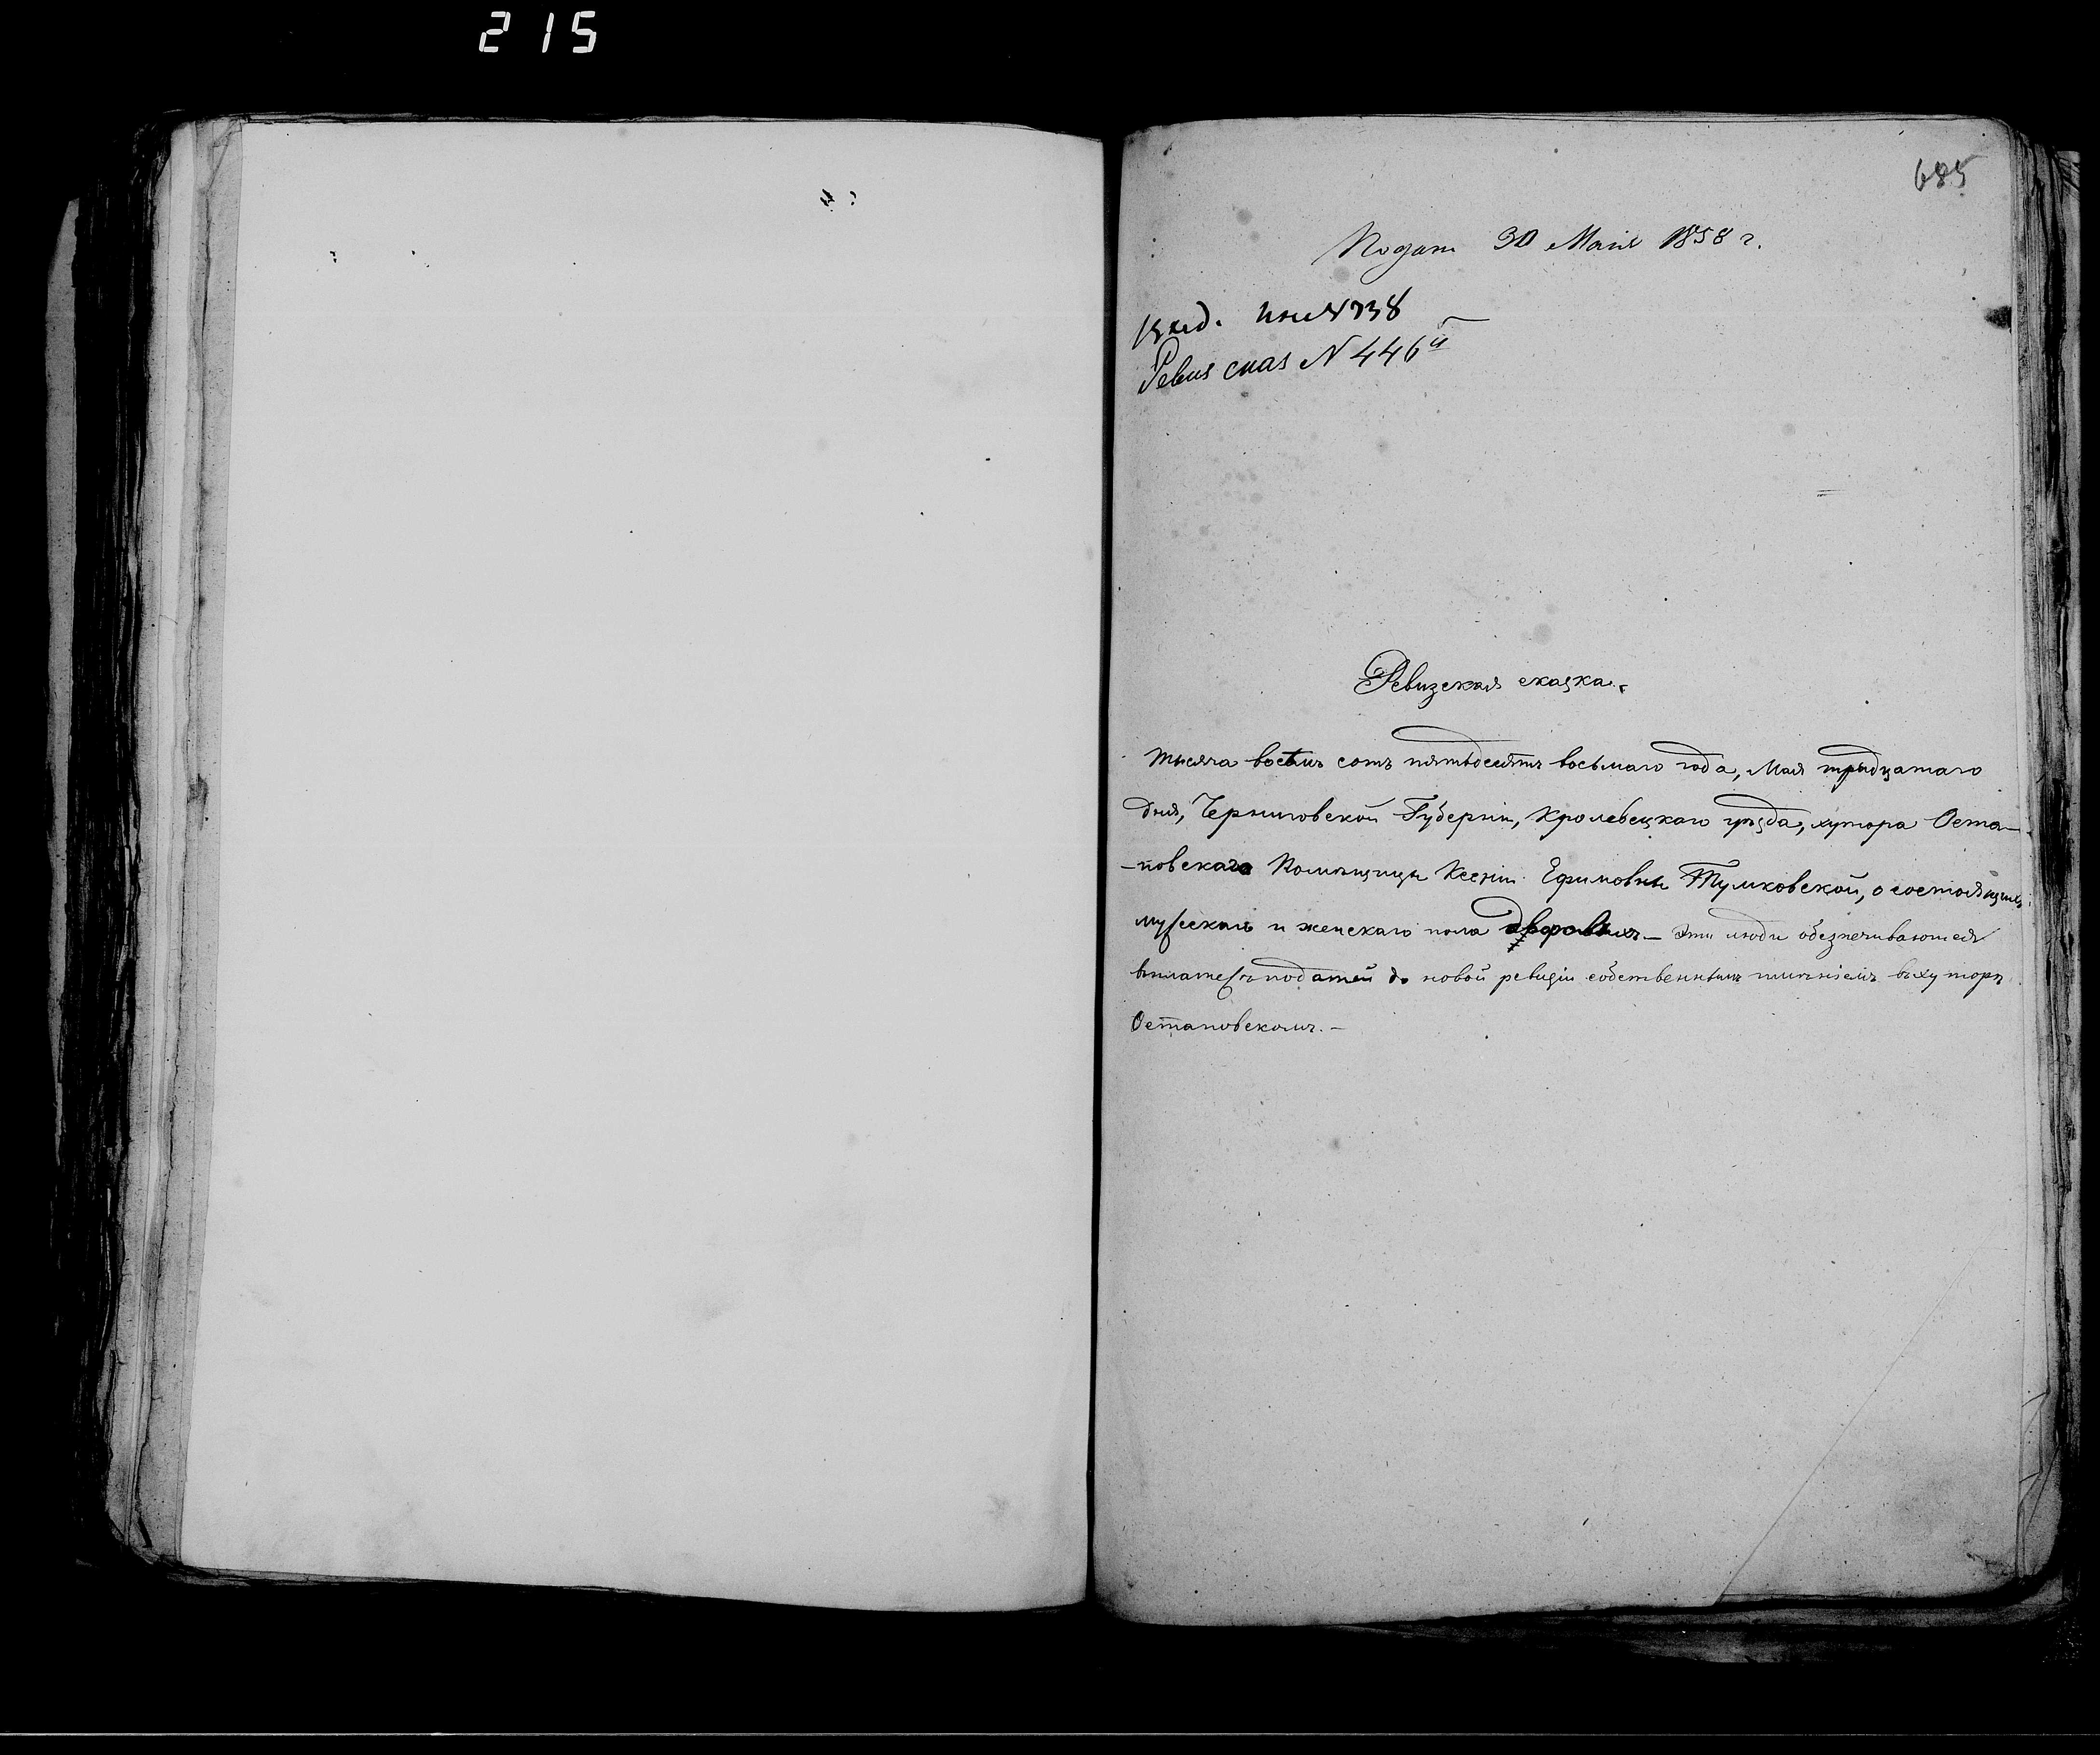 215
685
Подан 30 Маія 1858 г.
Ревиз сказ N 446й
Ревизская сказка.
тысяча восемь сотъ пятьдесятъ восьмаго года, Мая тридцатаго
дня, Черниговской Губерніи, Кролевецкаго уѣзда, хутора Оста-
-повскаго Помѣщицы Ксеніи Ефимовны Тумковской, о состоящихъ
мужескаго и женскаго пола дворовыхъ. — Эти люди обезпечиваются
въ платежѣ податей до новой ревизіи собственнымъ имѣніемъ въ хуторѣ
Остаповскомъ. —